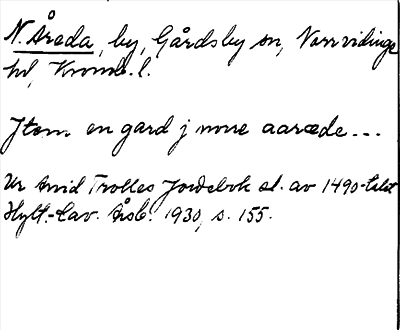 N. Åreda, by, Gårdsby sn, Norrvidinge
hd, Kronob. l.
Jtem en gard j norre aaræde...
Ur Arvid Trolles Jordebok sl. av 1490-talet
Hylt.-Cav. Årsb. 1930, s. 155.